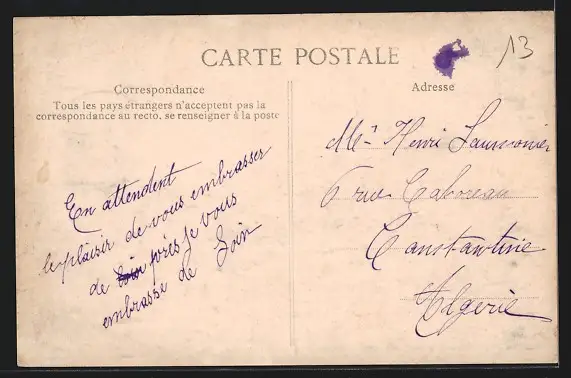 CARTE POSTALE
13
Correspondance
Tous les pays étrangers n'acceptent pas la
correspondance au recto, se renseigner à la poste
En attendent
le plaisir de vous embrasser
de loin près je vous
embrasse de Loin
Adresse
Henri
6 rue
Constantine
Algerie